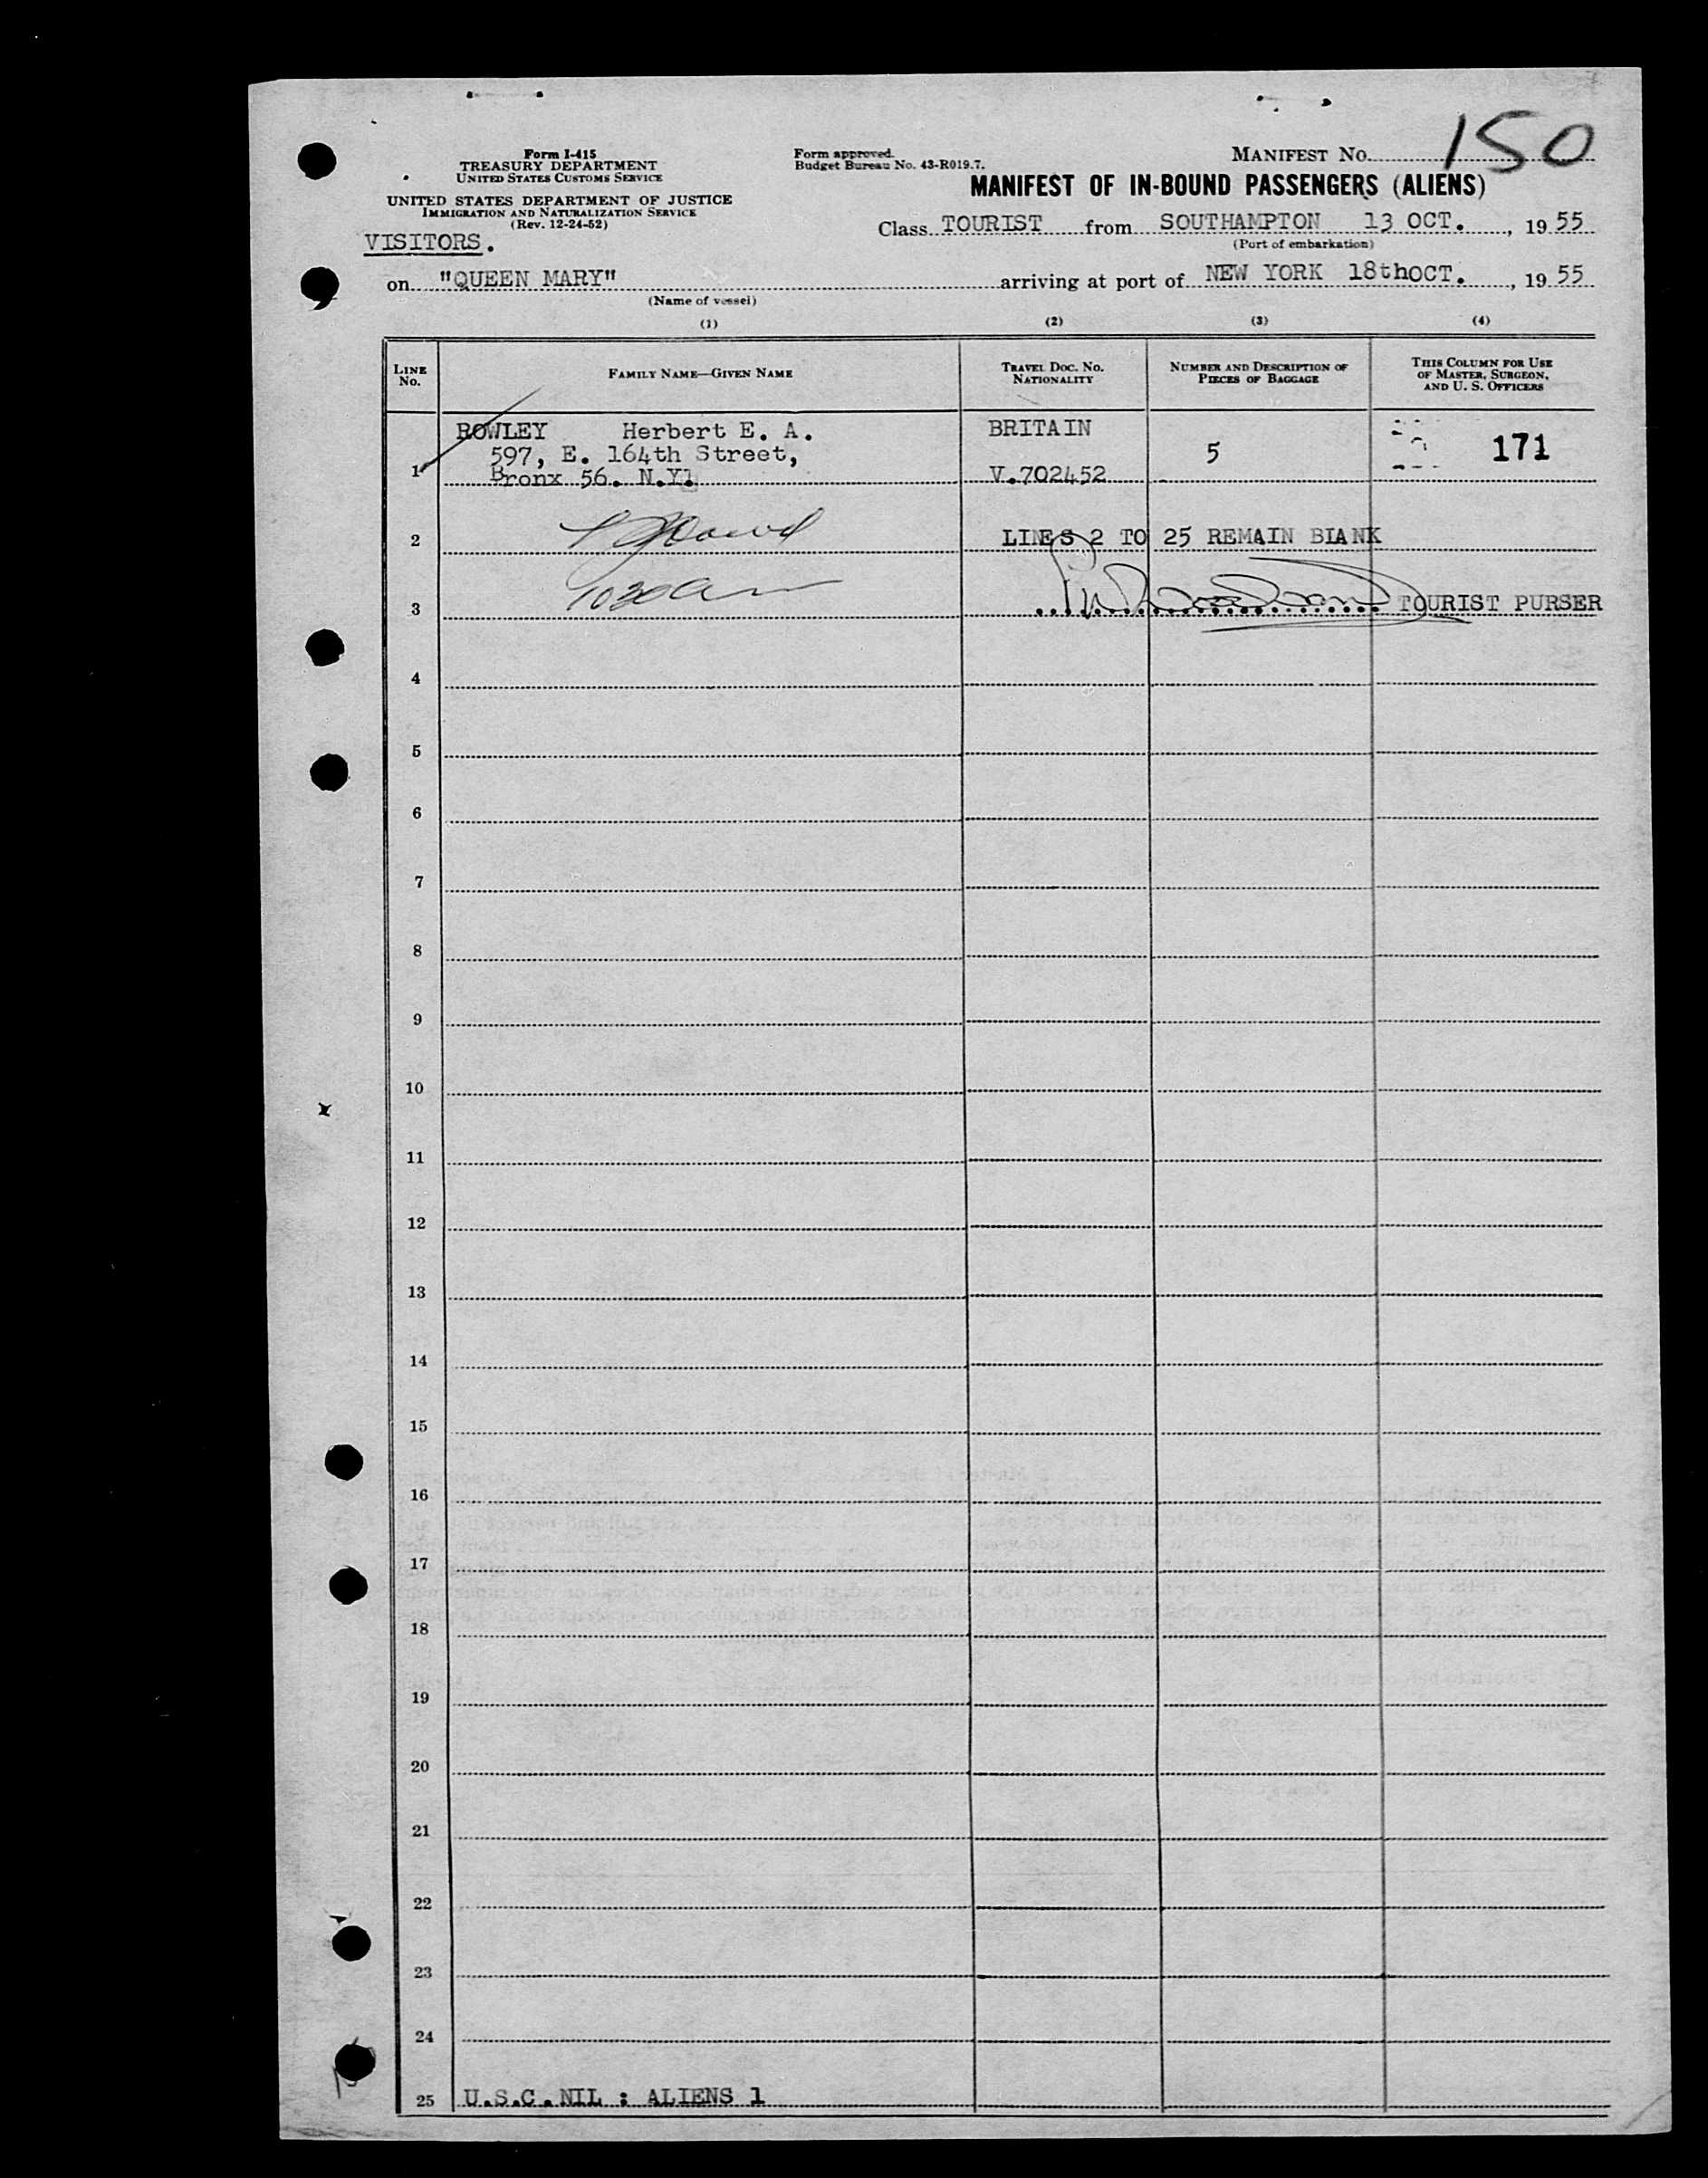 150
Form I-415
TREASURY DEPARTMENT
UNITED STATES CUSTOMS SERVICE
UNITED STATES DEPARTMENT OF JUSTICE
IMMIGRATION AND NATURALIZATION SERVICE
(Rev. 12-24-52)
VISITORS.
Form approved.
Budget Bureau No. 43-R019.7.
MANIFEST NO.
MANIFEST OF IN-BOUND PASSENGERS (ALIENS)
Class TOURIST from SOUTHAMPTON 13 OCT., 19 55
(Port of embarkation)
on "QUEEN MARY" arriving at port of NEW YORK 18thOCT., 19 55
(Name of vessel)
(1) (2) (3) (4)
LINE No. FAMILY NAME—GIVEN NAME TRAVEL DOC. NO. NATIONALITY NUMBER AND DESCRIPTION OF PIECES OF BAGGAGE THIS COLUMN FOR USE OF MASTER, SURGEON, AND U. S. OFFICERS
ROWLEY Herbert E. A. BRITAIN
597, E. 164th Street, 5 171
1 Bronx 56. N.Y. V.702452
2 LINES 2 TO 25 REMAIN BIANK
1030 am
3 TOURIST PURSER
4
5
6
7
8
9
10
11
12
13
14
15
16
17
18
19
20
21
22
23
24
25 U.S.C.NIL : ALIENS 1